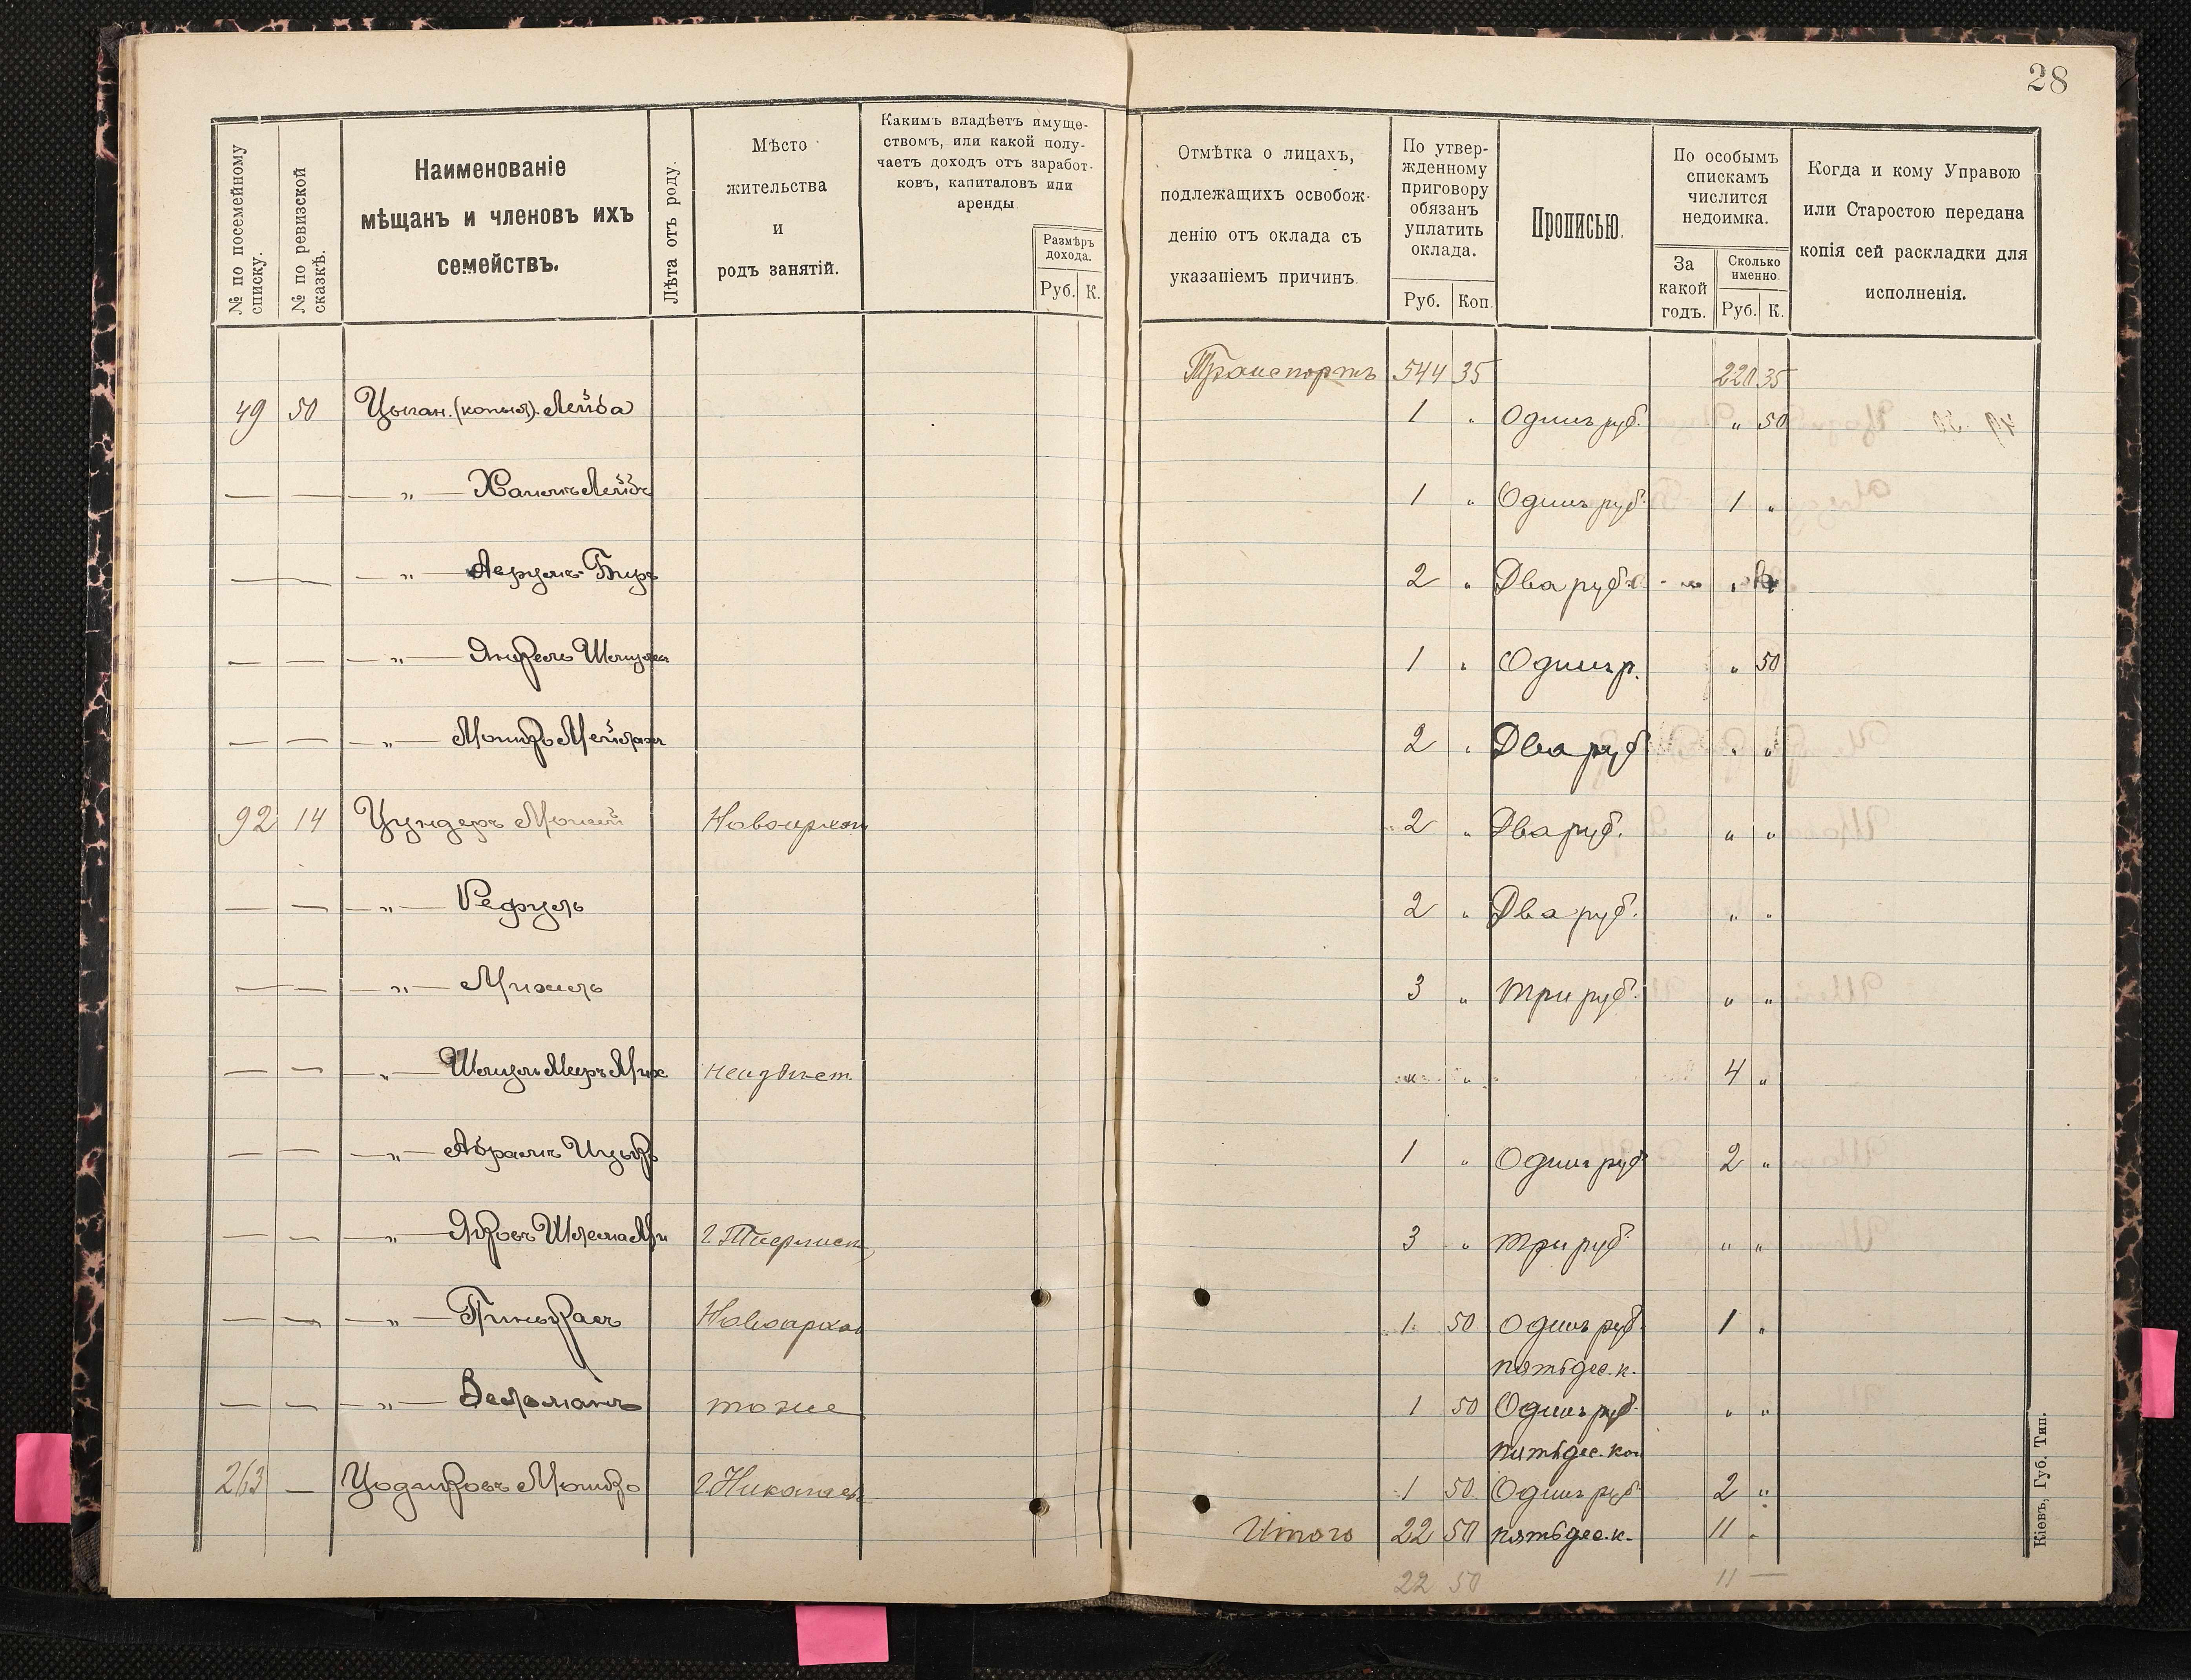 28
№ по посемейному
списку.
№ по ревизской
сказкѣ.
Наименованіе
мѣщанъ и членовъ ихъ
семействъ.
Лѣта отъ роду.
Мѣсто
жительства
и
родъ занятій.
Какимъ владѣетъ имуще-
ствомъ, или какой полу-
чаетъ доходъ отъ заработ-
ковъ, капиталовъ или
аренды
Размѣръ
дохода.
Руб. К.
Отмѣтка о лицахъ,
подлежащихъ освобож-
денію отъ оклада съ
указаніемъ причинъ.
По утвер-
жденному
приговору
обязанъ
уплатить
оклада.
Руб. Коп.
Прописью.
По особымъ
спискамъ
числится
недоимка.
За
какой
годъ.
Сколько
именно.
Руб. К.
Когда и кому Управою
или Старостою передана
копія сей раскладки для
исполненія.
Транспортъ 544 35 220 35
49 50 Цыган. Лейба 1 " Одинъ руб. " 50
— — — " — Хаимъ Лейбъ 1 " Одинъ руб. 1 "
— — — " — Аврумъ-Беръ 2 " Два руб.
— — — " — Янкель Шмуль 1 " Одинъ р. " 50
— — — " — Мошко Мейлахъ 2 " Два руб. " "
92 14 Цундеръ Мошей Новоархан 2 " Два руб. " "
— — — " — Рефуль 2 " Два руб. " "
— — — " — Михель 3 " Три руб. " "
— — — " — Шмуль Мееръ Мих неизвѣст. " " 4 "
— — — " — Абрамъ Ицько 1 " Одинъ руб 2 "
— — — " — Яковъ Шлема 3 " Три руб. " "
— — — " — Пинькасъ Новоархан 1 50 Одинъ руб. 1 "
пятьдес. к.
— — — " — Зельманъ тоже 1 50 Одинъ руб. " "
пятьдес. коп
263 — Цодиковъ Мошко г. Николаев 1 50 Одинъ руб 2 "
Итого 22 50 пятьдес. к. 11 "
22 50 11 —
Кіевъ, Губ. Тип.